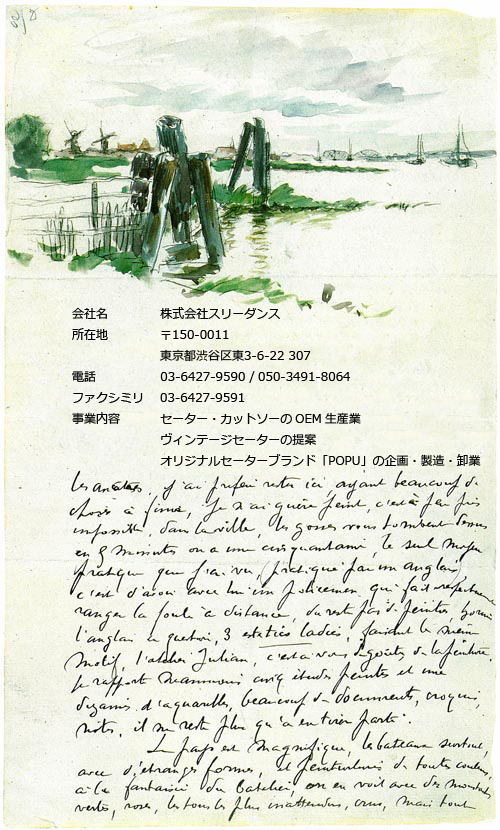 会社名 株式会社スリーダンス
所在地 〒150-0011
東京都渋谷区東3-6-22 307
電話 03-6427-9590 / 050-3491-8064
ファクシミリ 03-6427-9591
事業内容 セーター・カットソーのOEM生産業
ヴィンテージセーターの提案
オリジナルセーターブランド「POPU」の企画・製造・卸業
j'ai préféré rester ici, ayant beaucoup de
choses à finir, je n'ai guère peint, c'est à peu près
impossible, dans la ville, les gosses vous tombent dessus
en 5 minutes on a une cinquantaine, le seul moyen
pratique que j'ai vu pratiqué par un anglais,
c'est d'avoir avec lui un policeman, qui fait
ranger la foule à distance, du reste pas de peintres, hormis
l'anglais 3 ladies, faisant le même
motif, l'atelier Julian, c'est à vous dégoûter de la peinture.
Je rapporte cinq études peintes et une
dizaine d'aquarelles, beaucoup de documents, croquis,
notes, il ne reste plus qu'à en tirer parti.
Le pays est magnifique, les bateaux surtout,
avec d'étranges formes, et peinturlurés de toutes couleurs,
à la fantaisie du batelier, on en voit avec des
vertes, roses, les tons les plus inattendus, crus, mais tout